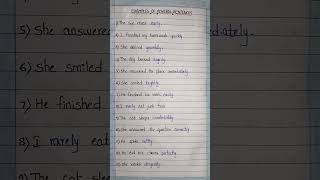 EXAMPLES OF ADVERB SENTENCES
1) The sun rises early.
2) I finished my homework quickly.
3) She danced gracefully.
4) The dog barked loudly.
5) She answered the phone immediately.
6) She smiled brightly.
7) He finished his work easily.
8) I rarely eat junk food.
9) The cat sleeps comfortably.
10) She answered the question correctly.
11) He spoke softly.
12) He did his chores perfectly.
13) She works diligently.
5) She answered
mediately.
6) She smiled
7) He finished
8) I rarely eat
9) The cat sle